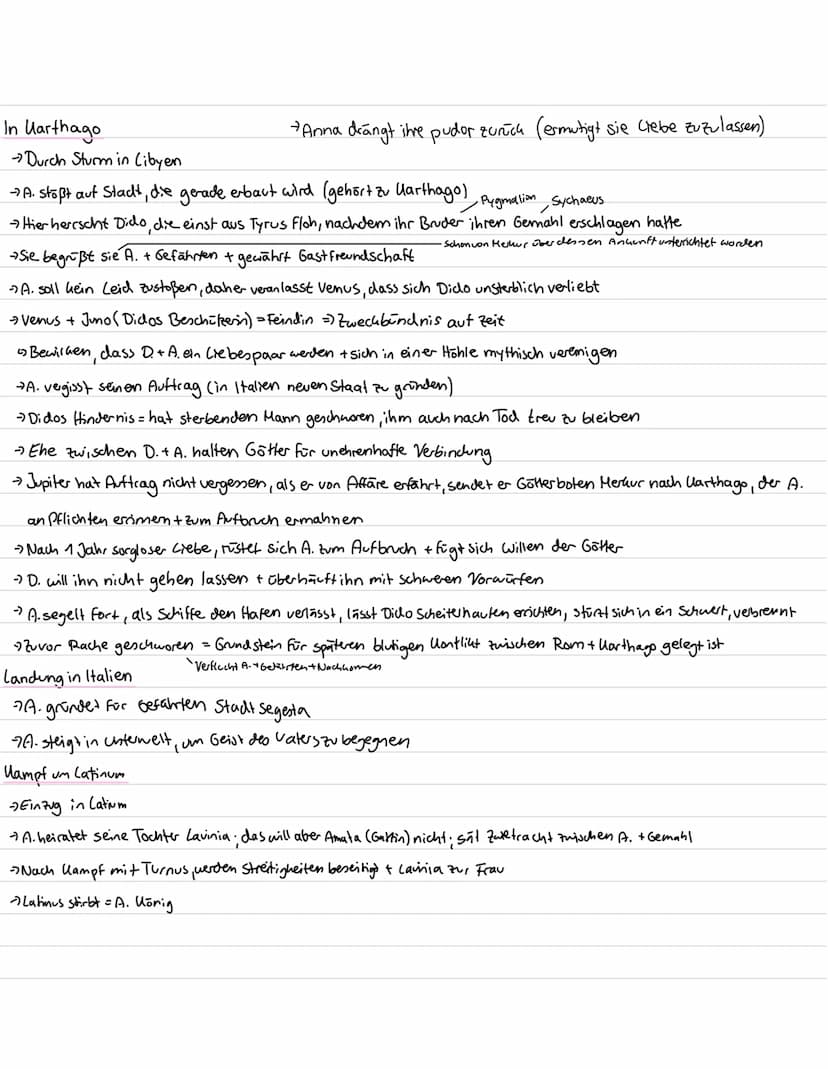 In Karthago
→Anna drängt ihre pudor zurück (ermutigt sie Liebe zuzulassen)
→Durch Sturm in Libyen
→A. stößt auf Stadt, die gerade erbaut wird (gehört zu Karthago)
Pygmalion Sychaeus
→Hier herrscht Dido, die einst aus Tyrus floh, nachdem ihr Bruder ihren Gemahl erschlagen hatte
schon von Merkur über dessen Ankunft unterrichtet worden
→Sie begrüßt sie A. + Gefährten + gewährt Gastfreundschaft
→A. soll kein Leid zustoßen, daher veranlasst Venus, dass sich Dido unsterblich verliebt
→Venus + Juno (Didos Beschützerin) = Feindin ⇒ Zweckbündnis auf Zeit
↳Bewirken, dass D + A. ein Liebespaar werden + sich in einer Höhle mythisch vereinigen
→A. vergisst seinen Auftrag (in Italien neuen Staat zu gründen)
→Didos Hindernis = hat sterbenden Mann geschworen, ihm auch nach Tod treu zu bleiben
→Ehe zwischen D. + A. halten Götter für unehrenhafte Verbindung
→Jupiter hat Auftrag nicht vergessen, als er von Affäre erfährt, sendet er Götterboten Merkur nach Karthago, der A.
an Pflichten erinnern + zum Aufbruch ermahnen
→Nach 1 Jahr sorgloser Liebe, rüstet sich A. zum Aufbruch + fügt sich Willen der Götter
→D. will ihn nicht gehen lassen + überhäuft ihn mit schweren Vorwürfen
→A. segelt fort, als Schiffe den Hafen verlässt, lässt Dido Scheiterhaufen errichten, stürzt sich in ein Schwert, verbrennt
→Zuvor Rache geschworen = Grundstein für späteren blutigen Konflikt zwischen Rom + Karthago gelegt ist
Verflucht A. + Gefährten + Nachkommen
Landung in Italien
→A. gründet für Gefährten Stadt Segesta
→A. steigt in Unterwelt, um Geist des Vaters zu begegnen
Kampf um Latinum
→Einzug in Latium
→A. heiratet seine Tochter Lavinia; das will aber Amata (Gattin) nicht; sät Zwietracht zwischen A. + Gemahl
→Nach Kampf mit Turnus, werden Streitigkeiten beseitigt + Lavinia zur Frau
→Latinus stirbt = A. König